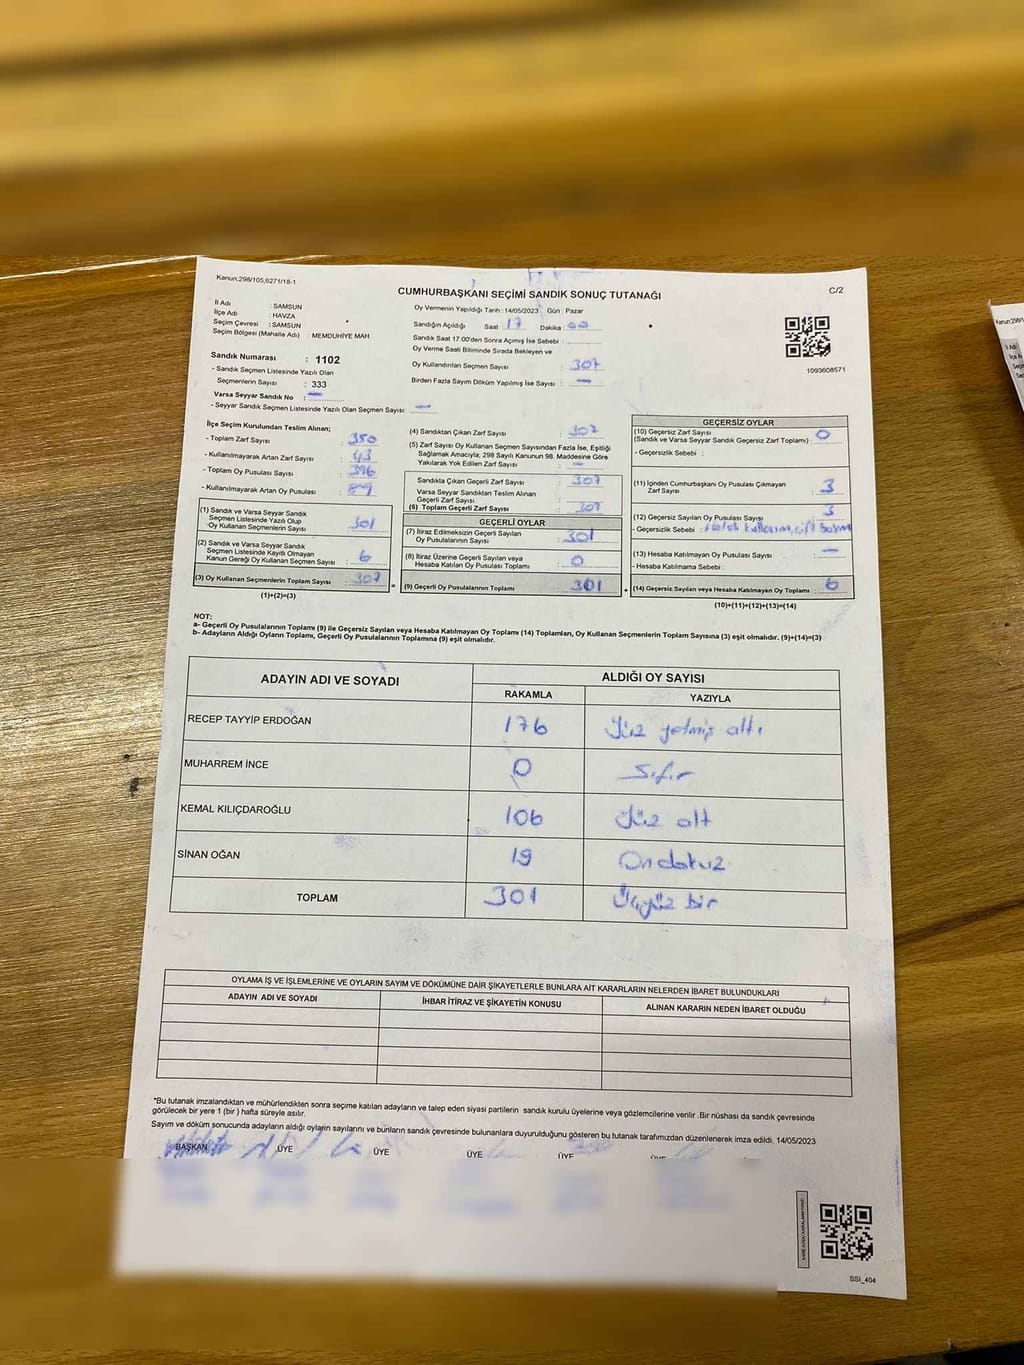 Kanun;298/105;6271/18-1
CUMHURBAŞKANI SEÇİMİ SANDIK SONUÇ TUTANAĞI
C/2
İl Adı : SAMSUN
İlçe Adı : HAVZA
Seçim Çevresi : SAMSUN
Seçim Bölgesi (Mahalle Adı) : MEMDUHİYE MAH
Sandık Numarası : 1102
- Sandık Seçmen Listesinde Yazılı Olan
Seçmenlerin Sayısı : 333
Varsa Seyyar Sandık No : —
- Seyyar Sandık Seçmen Listesinde Yazılı Olan Seçmen Sayısı: —
Oy Vermenin Yapıldığı Tarih : 14/05/2023 Gün : Pazar
Sandığın Açıldığı Saat : 17 Dakika : 00
Sandık Saat 17.00'den Sonra Açımış İse Sebebi :
Oy Verme Saati Bitiminde Sırada Bekleyen ve
Oy Kullandırılan Seçmen Sayısı : 307
Birden Fazla Sayım Döküm Yapılmış İse Sayısı : —
1093608571
İlçe Seçim Kurulundan Teslim Alınan;
- Toplam Zarf Sayısı : 350
- Kullanılmayarak Artan Zarf Sayısı : 43
- Toplam Oy Pusulası Sayısı : 396
- Kullanılmayarak Artan Oy Pusulası : 89
(1) Sandık ve Varsa Seyyar Sandık
Seçmen Listesinde Yazılı Olup
Oy Kullanan Seçmenlerin Sayısı : 301
(2) Sandık ve Varsa Seyyar Sandık
Seçmen Listesinde Kayıtlı Olmayan
Kanun Gereği Oy Kullanan Seçmen Sayısı : 6
(3) Oy Kullanan Seçmenlerin Toplam Sayısı : 307
(1)+(2)=(3)
(4) Sandıktan Çıkan Zarf Sayısı : 307
(5) Zarf Sayısı Oy Kullanan Seçmen Sayısından Fazla İse, Eşitliği
Sağlamak Amacıyla; 298 Sayılı Kanunun 98. Maddesine Göre
Yakılarak Yok Edilen Zarf Sayısı : —
Sandıkta Çıkan Geçerli Zarf Sayısı : 307
Varsa Seyyar Sandıktan Teslim Alınan
Geçerli Zarf Sayısı :
(6) Toplam Geçerli Zarf Sayısı : 307
GEÇERLİ OYLAR
(7) İtiraz Edilmeksizin Geçerli Sayılan
Oy Pusulalarının Sayısı : 301
(8) İtiraz Üzerine Geçerli Sayılan veya
Hesaba Katılan Oy Pusulası Sayısı : 0
= (9) Geçerli Oy Pusulalarının Toplamı : 301
GEÇERSİZ OYLAR
(10) Geçersiz Zarf Sayısı
(Sandık ve Varsa Seyyar Sandık Geçersiz Zarf Toplamı) : 0
- Geçersizlik Sebebi :
(11) İçinden Cumhurbaşkanı Oy Pusulası Çıkmayan
Zarf Sayısı : 3
(12) Geçersiz Sayılan Oy Pusulası Sayısı : 3
- Geçersizlik Sebebi :
(13) Hesaba Katılmayan Oy Pusulası Sayısı : —
- Hesaba Katılmama Sebebi :
+ (14) Geçersiz Sayılan veya Hesaba Katılmayan Oy Toplamı : 6
(10)+(11)+(12)+(13)=(14)
NOT:
a- Geçerli Oy Pusulalarının Toplamı (9) ile Geçersiz Sayılan veya Hesaba Katılmayan Oy Toplamı (14) Toplamları, Oy Kullanan Seçmenlerin Toplam Sayısına (3) eşit olmalıdır. (9)+(14)=(3)
b- Adayların Aldığı Oyların Toplamı, Geçerli Oy Pusulalarının Toplamına (9) eşit olmalıdır.
ADAYIN ADI VE SOYADI ALDIĞI OY SAYISI
RAKAMLA YAZIYLA
RECEP TAYYİP ERDOĞAN 176 Yüz yetmiş altı
MUHARREM İNCE 0 Sıfır
KEMAL KILIÇDAROĞLU 106 Yüz altı
SİNAN OĞAN 19 Ondokuz
TOPLAM 301 Üçyüz bir
OYLAMA İŞ VE İŞLEMLERİNE VE OYLARIN SAYIM VE DÖKÜMÜNE DAİR ŞİKAYETLERLE BUNLARA AİT KARARLARIN NELERDEN İBARET BULUNDUKLARI
ADAYIN ADI VE SOYADI İHBAR İTİRAZ VE ŞİKAYETİN KONUSU ALINAN KARARIN NEDEN İBARET OLDUĞU
*Bu tutanak imzalandıktan ve mühürlendikten sonra seçime katılan adayların ve talep eden siyasi partilerin sandık kurulu üyelerine veya gözlemcilerine verilir .Bir nüshası da sandık çevresinde
görülecek bir yere 1 (bir ) hafta süreyle asılır.
Sayım ve döküm sonucunda adayların aldığı oyların sayılarını ve bunların sandık çevresinde bulunanlara duyurulduğunu gösteren bu tutanak tarafımızdan düzenlenerek imza edildi. 14/05/2023
BAŞKAN ÜYE ÜYE ÜYE ÜYE ÜYE
SSI_404